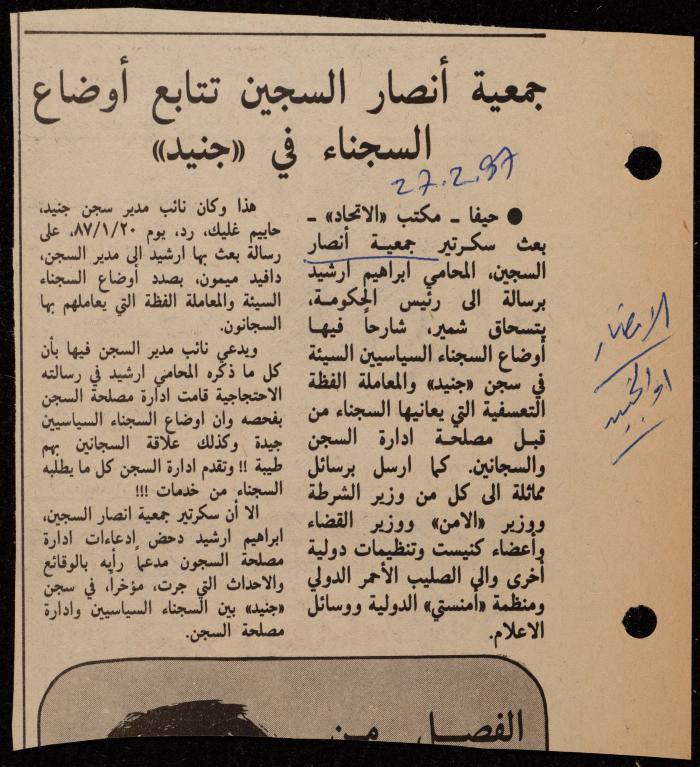 جمعية أنصار السجين تتابع أوضاع
السجناء في «جنيد»
27.2.87
● حيفا ـ مكتب «الاتحاد» ـ
بعث سكرتير جمعية أنصار
السجين، المحامي ابراهيم ارشيد
برسالة الى رئيس الحكومة،
يتسحاق شمير، شارحاً فيها
أوضاع السجناء السياسيين السيئة
في سجن «جنيد» والمعاملة الفظة
التعسفية التي يعانيها السجناء من
قبل مصلحة ادارة السجن
والسجانين. كما ارسل برسائل
مماثلة الى كل من وزير الشرطة
ووزير «الامن» ووزير القضاء
وأعضاء كنيست وتنظيمات دولية
أخرى والى الصليب الأحمر الدولي
ومنظمة «أمنستي» الدولية ووسائل
الاعلام.
هذا وكان نائب مدير سجن جنيد،
حاييم غليك، رد، يوم ٨٧/١/٢٠، على
رسالة بعث بها ارشيد الى مدير السجن،
دافيد ميمون، بصدد أوضاع السجناء
السيئة والمعاملة الفظة التي يعاملهم بها
السجانون.
ويدعي نائب مدير السجن فيها بأن
كل ما ذكره المحامي ارشيد في رسالته
الاحتجاجية قامت ادارة مصلحة السجن
بفحصه وان اوضاع السجناء السياسيين
جيدة وكذلك علاقة السجانين بهم
طيبة !! وتقدم ادارة السجن كل ما يطلبه
السجناء من خدمات !!!
الا أن سكرتير جمعية انصار السجين،
ابراهيم ارشيد دحض إدعاءات ادارة
مصلحة السجون مدعماً رأيه بالوقائع
والاحداث التي جرت، مؤخراً، في سجن
«جنيد» بين السجناء السياسيين وادارة
مصلحة السجن.
الفصل من